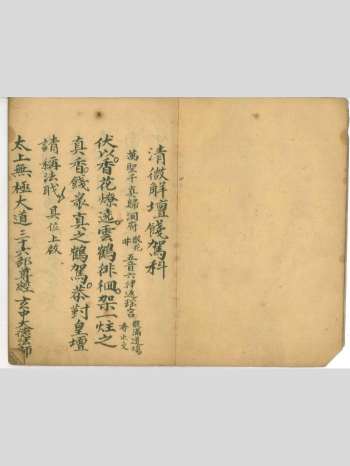 清微解壇餞駕科
萬聖千真歸洞府 散花 五音六律返 宮 滿道場
伏以香花燎遶雲鶴徘徊架一炷之
真香餞衆真之鶴駕恭對皇壇
請稱法职 具位上啟
太上無極大道三十六部尊經 玄中大法師